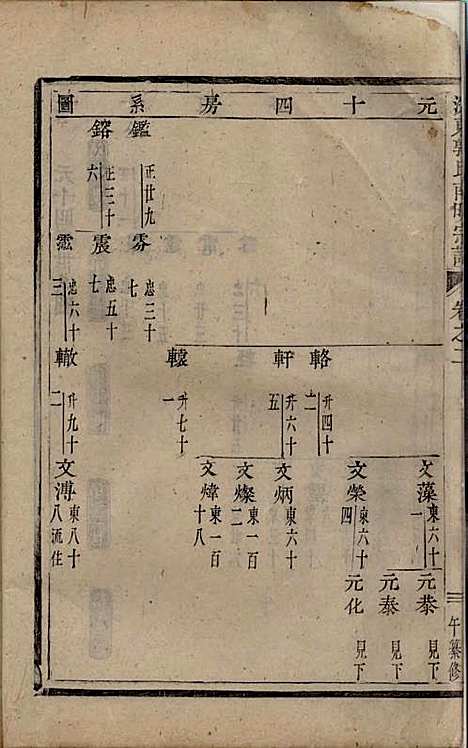 元十四房系圖
鑑 正廿九
鎔 正三十六
雰 忠三十七
震 忠五十七
忠六十三
輅 升四十二
軒 升六十五
轅 升七十一
轍 升九十二
文藻 東六十一
文榮 東六十四
文炳 東六十
文燦 東一百二
文煒 東一百十八
文溥 東八十八流住
元恭 見下
元泰 見下
元化 見下
宗譜
卷之二
三
午纂修